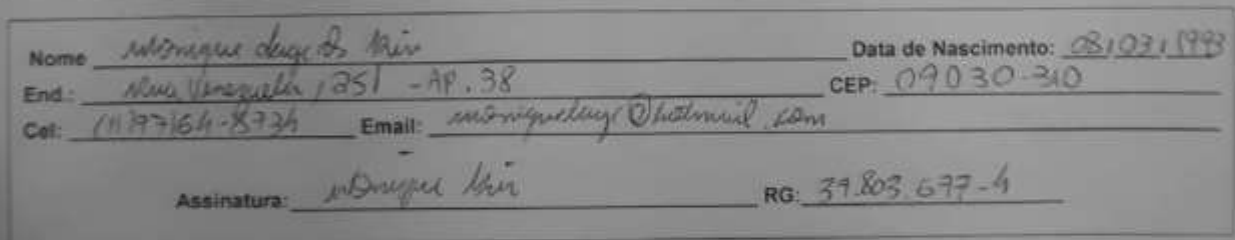 Nome Monique Data de Nascimento: 08/03/1993
End.: Rua Venezuela, 251 - AP. 38 CEP: 09030-310
Cel: (11)97164-8734 Email: @hotmail.com
Assinatura: Monique RG: 39.803.677-4